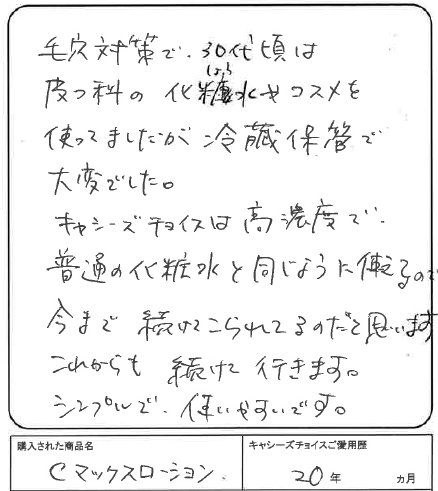 毛穴対策で、30代頃は
皮フ科の化粧水やコスメを
しょう
使ってましたが冷蔵保管で
大変でした。
キャシーズチョイスは高濃度で、
普通の化粧水と同じように使えるので
今まで続けてこられてるのだと思います
これからも続けて行きます。
シンプルで、使いやすいです。
購入された商品名
Cマックスローション
キャシーズチョイスご愛用歴
20年 ヵ月